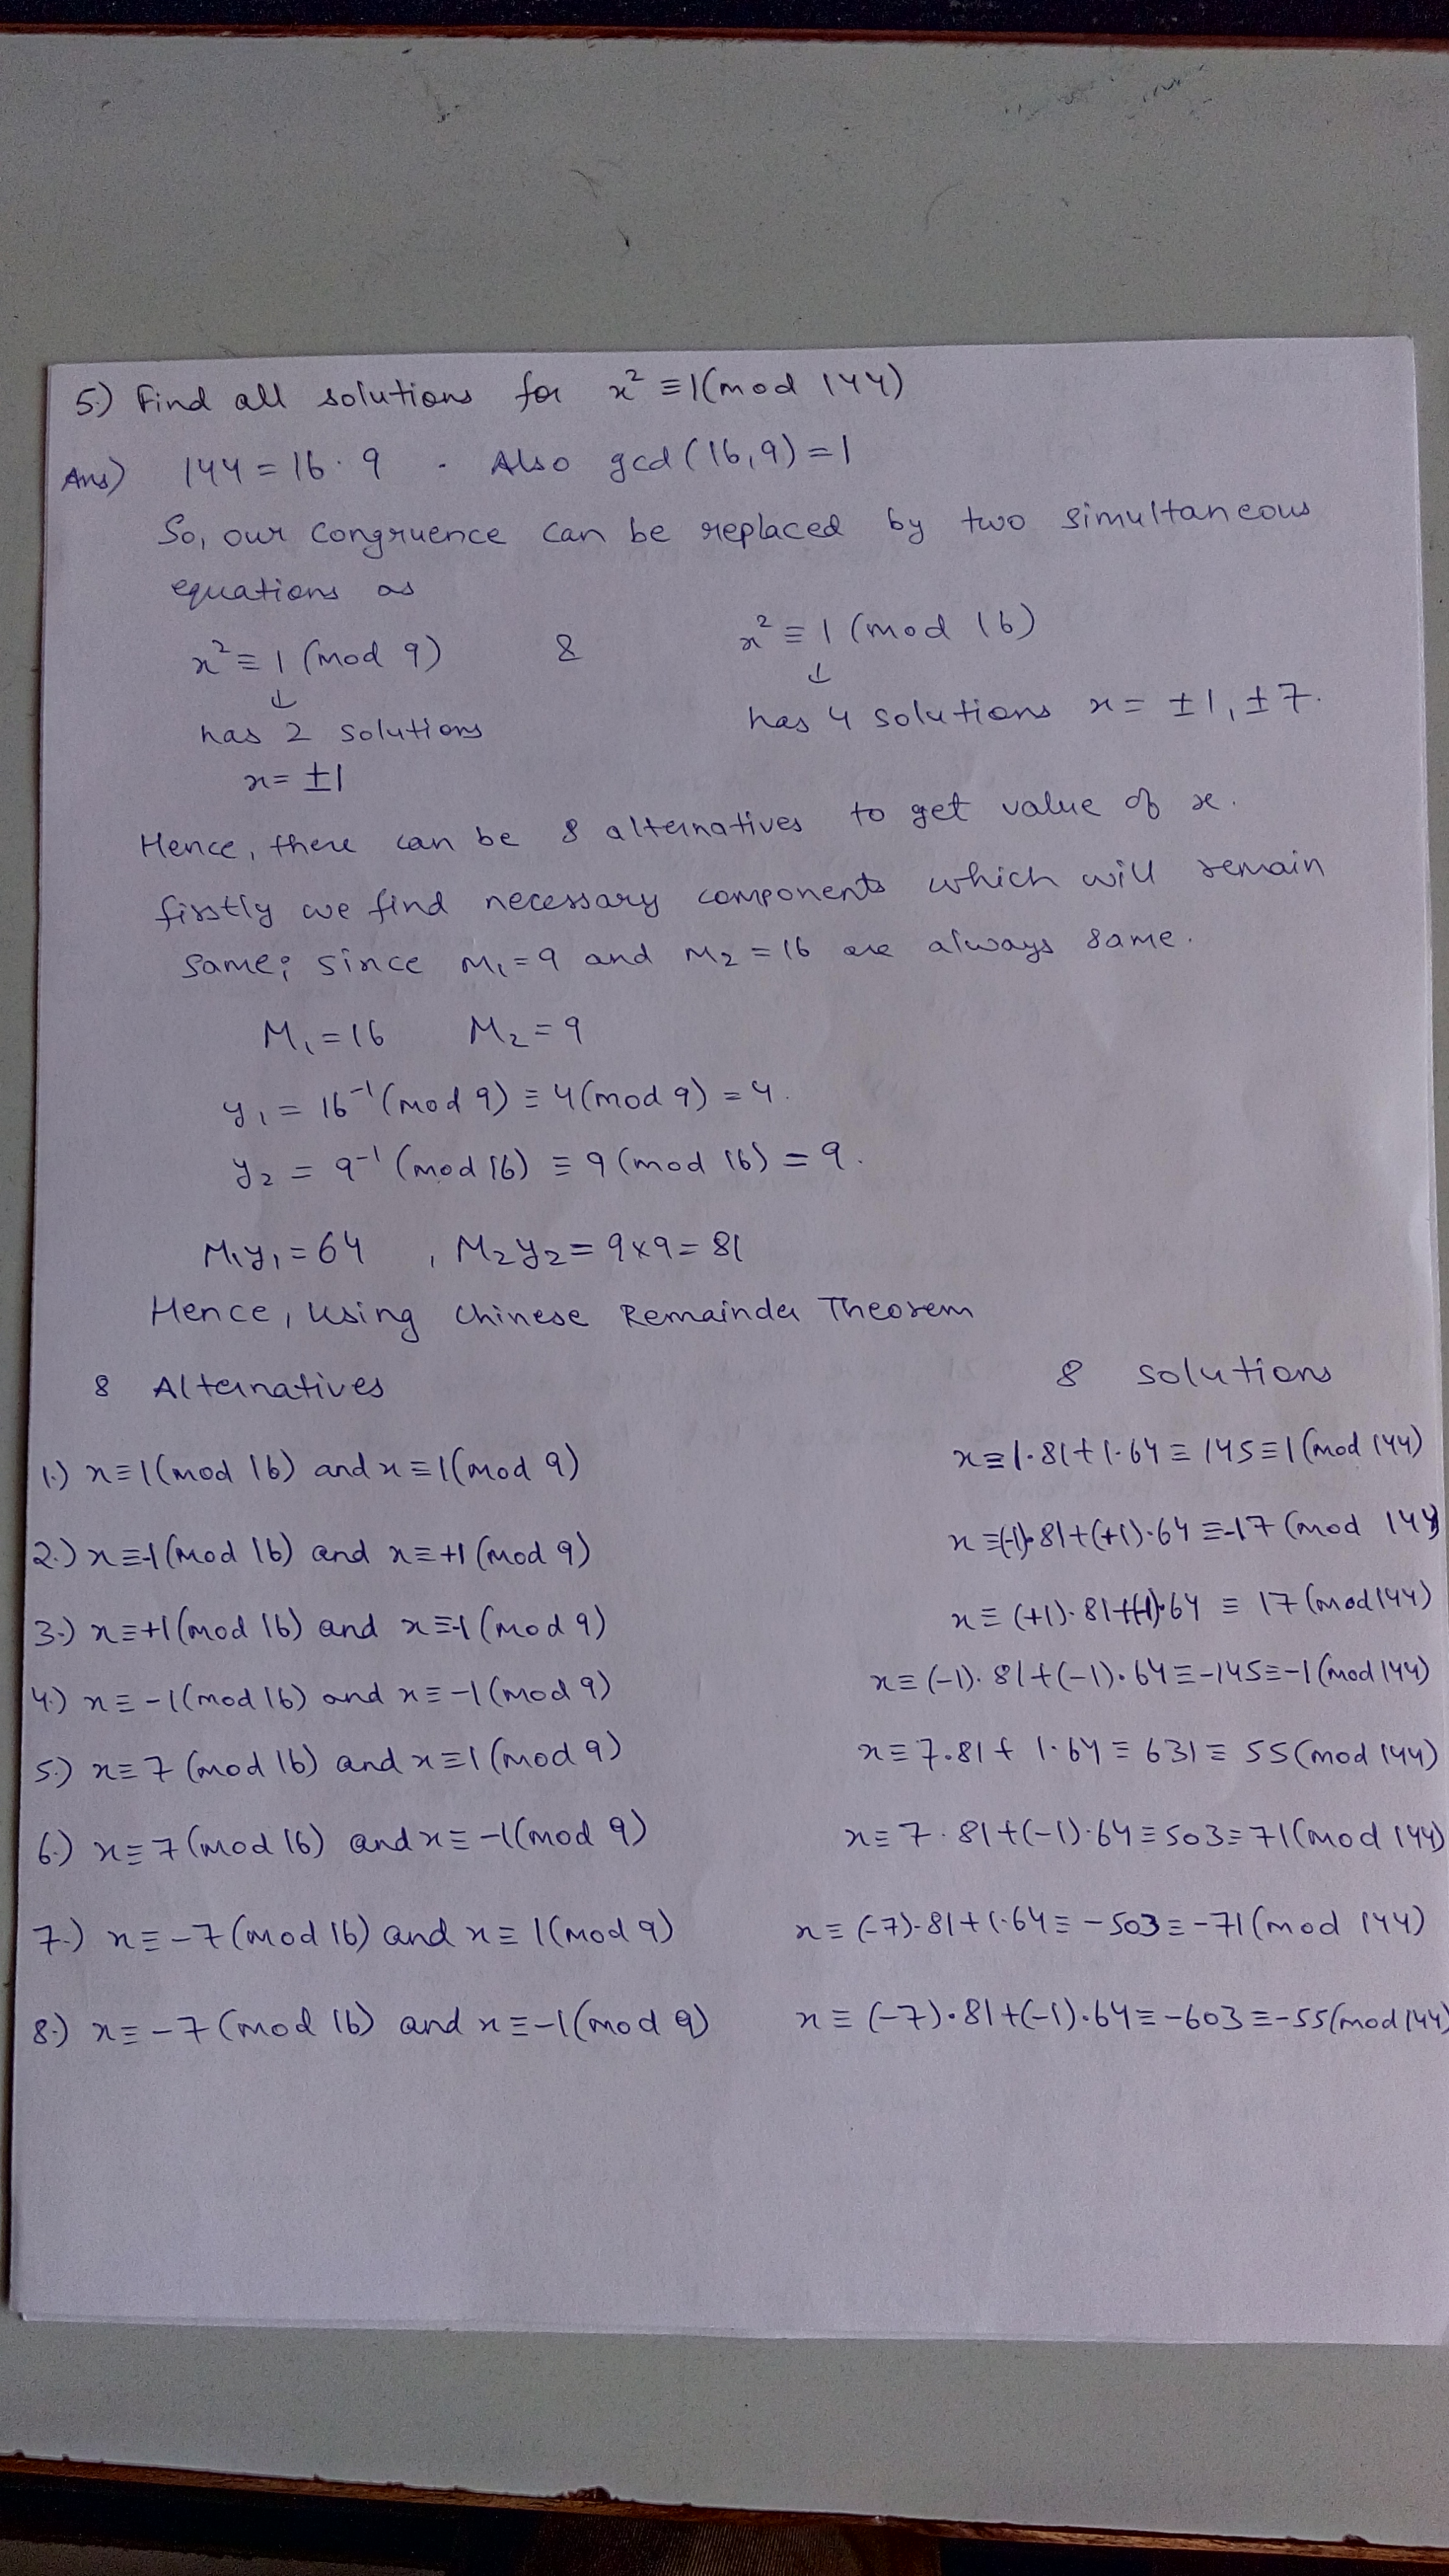 5.) Find all solutions for x² ≡ 1(mod 144)
Ans) 144 = 16 · 9 . Also gcd(16,9) = 1
So, our congruence can be replaced by two simultaneous
equations as
x² ≡ 1 (mod 9) & x² ≡ 1 (mod 16)
↓ ↓
has 2 solutions has 4 solutions x = ±1, ±7.
x = ±1
Hence, there can be 8 alternatives to get value of x.
firstly we find necessary components which will remain
same; since m₁ = 9 and m₂ = 16 are always same.
M₁ = 16 M₂ = 9
y₁ = 16⁻¹(mod 9) ≡ 4(mod 9) = 4.
y₂ = 9⁻¹ (mod 16) ≡ 9 (mod 16) = 9.
M₁y₁ = 64 , M₂y₂ = 9×9 = 81
Hence, using Chinese Remainder Theorem
8 Alternatives 8 solutions
1.) x ≡ 1(mod 16) and x ≡ 1(mod 9) x ≡ 1·81 + 1·64 ≡ 145 ≡ 1(mod 144)
2.) x ≡ -1(mod 16) and x ≡ +1(mod 9) x ≡ (-1)·81 + (+1)·64 ≡ -17 (mod 144)
3.) x ≡ +1(mod 16) and x ≡ -1(mod 9) x ≡ (+1)·81 + (-1)·64 ≡ 17 (mod 144)
4.) x ≡ -1(mod 16) and x ≡ -1(mod 9) x ≡ (-1)·81 + (-1)·64 ≡ -145 ≡ -1(mod 144)
5.) x ≡ 7 (mod 16) and x ≡ 1(mod 9) x ≡ 7·81 + 1·64 ≡ 631 ≡ 55(mod 144)
6.) x ≡ 7(mod 16) and x ≡ -1(mod 9) x ≡ 7·81 + (-1)·64 ≡ 503 ≡ 71(mod 144)
7.) x ≡ -7 (mod 16) and x ≡ 1(mod 9) x ≡ (-7)·81 + 1·64 ≡ -503 ≡ -71(mod 144)
8.) x ≡ -7 (mod 16) and x ≡ -1(mod 9) x ≡ (-7)·81 + (-1)·64 ≡ -603 ≡ -55(mod 144)